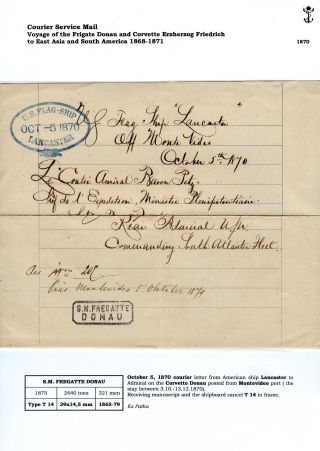 Courier Service Mail
Voyage of the Frigate Donau and Corvette Erzherzog Friedrich
to East Asia and South America 1868-1871
1870
U.S. FLAG-SHIP
OCT -5 1870
LANCASTER
US Flag Ship "Lancaster"
Off Monte Video
October 5th 1870
Le Contre Amiral Baron Petz
Rear Admiral
Commanding South Atlantic Fleet
Montevideo 5. Oktober 1870
S.M. FREGATTE
DONAU
S.M. FREGATTE DONAU
1875 2440 tons 321 men
Type T 14 39x14,5 mm 1865-79
October 5, 1870 courier letter from American ship Lancaster to
Admiral on the Corvette Donau posted from Montevideo port ( the
stay between 3.10.-13.12.1870).
Receiving manuscript and the shipboard cancel T 14 in frame.
Ex Patka